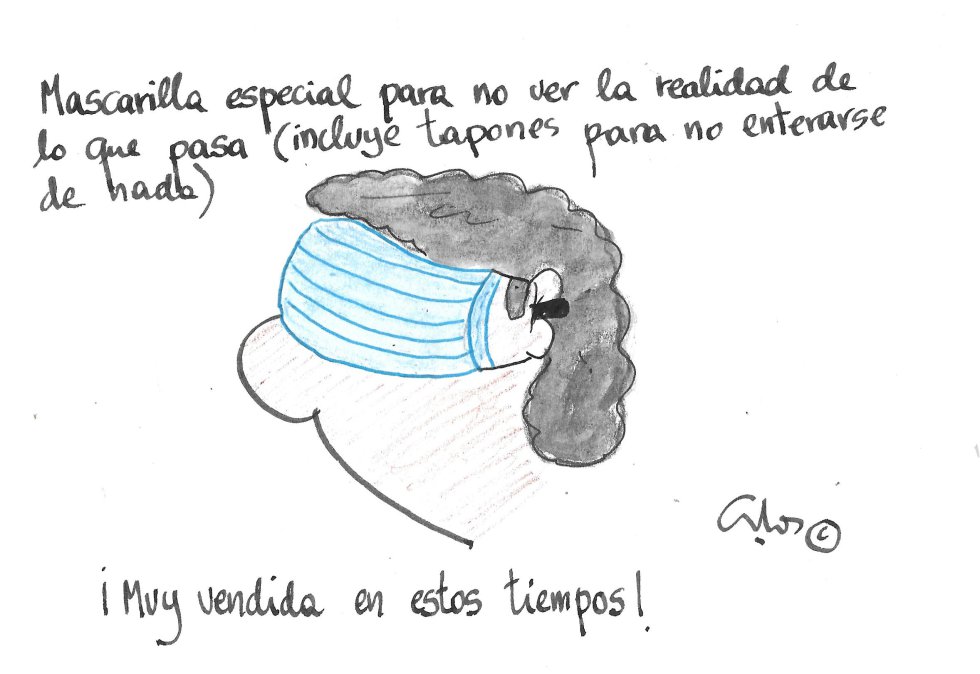 Mascarilla especial para no ver la realidad de
lo que pasa (incluye tapones para no enterarse
de nada)
Carlos ©
¡Muy vendida en estos tiempos!